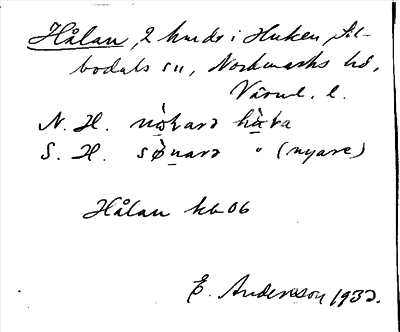 Hålan, 2 hmde i Huken, Sil-
bodals sn, Nordmarks hd,
Värml. l.
N. H. nø̀ʟarɑ hɑ̀ʟa
S. H. sø̀narɑ " (nyare)
Hålan kb 06
E. Andersson 1932.